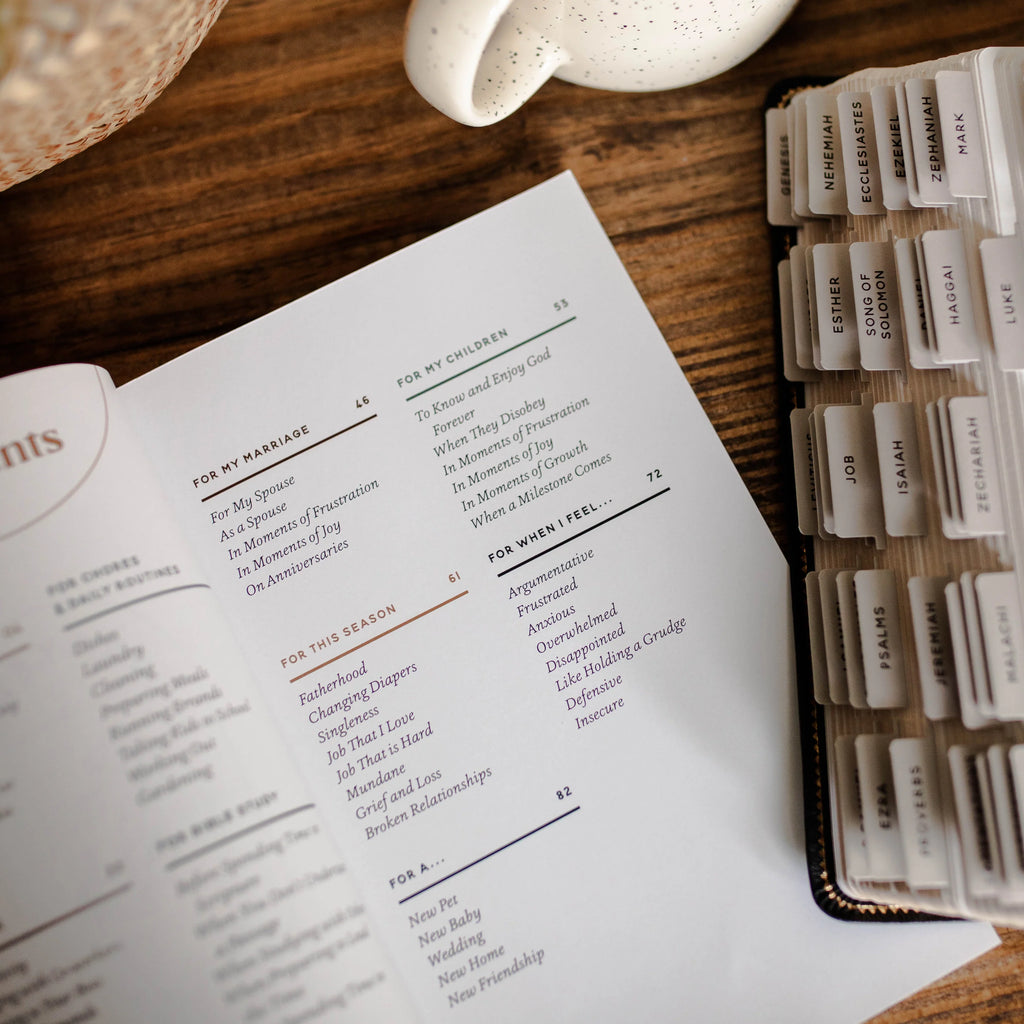 nts
FOR CHORES
& DAILY ROUTINES
Dishes
Laundry
Cleaning
Preparing Meals
Running Errands
Taking Kids to School
Working Out
Gardening
FOR BIBLE STUDY
FOR MY MARRIAGE 46
For My Spouse
As a Spouse
In Moments of Frustration
In Moments of Joy
On Anniversaries
FOR THIS SEASON 61
Fatherhood
Changing Diapers
Singleness
Job That I Love
Job That is Hard
Mundane
Grief and Loss
Broken Relationships
FOR A... 82
New Pet
New Baby
Wedding
New Home
New Friendship
FOR MY CHILDREN 53
To Know and Enjoy God
Forever
When They Disobey
In Moments of Frustration
In Moments of Joy
In Moments of Growth
When a Milestone Comes
FOR WHEN I FEEL... 72
Argumentative
Frustrated
Anxious
Overwhelmed
Disappointed
Like Holding a Grudge
Defensive
Insecure
GENESIS
NEHEMIAH
ECCLESIASTES
EZEKIEL
ZEPHANIAH
MARK
ESTHER
SONG OF
SOLOMON
DANIEL
HAGGAI
LUKE
LEVITICUS
JOB
ISAIAH
ZECHARIAH
PSALMS
JEREMIAH
MALACHI
EZRA
PROVERBS